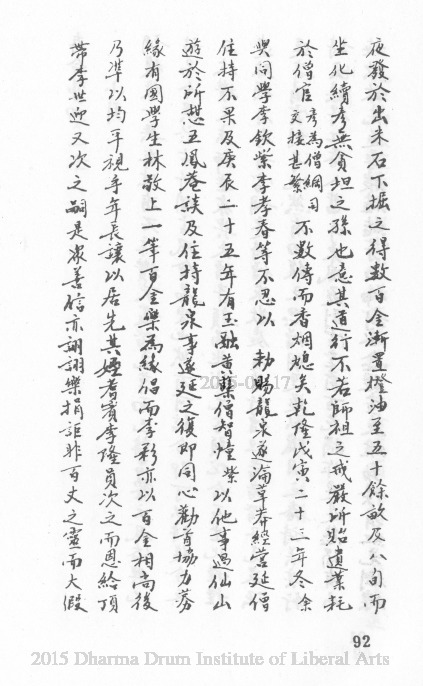 夜發於出米石下掘之得數百金漸置燈油至五十餘畝及八旬而
坐化續考無貪坦之孫也意其道行不若師祖之戒嚴所貽遺業耗
於僧官考為僧綱司交接甚繁不數傳而香烟熄矣乾隆戊寅二十三年冬余
與同學李欽棠李孝春等不忍以 勅賜龍泉遂淪草莽經營延僧
住持不果及庚辰二十五年有玉融黃檗僧智幢棠以他事過仙山
遊於所憩五鳳菴談及住持龍泉事遂延之復即同心勸首協力募
緣有國學生林敬上一筆百金樂為緣倡而李彩亦以百金相尚後
乃準以均平視年年長讓以居先其者賓李隆員次之而恩給頂
帶李世迎又次之嗣是眾善信亦詡詡樂捐詎非百丈之靈而大假
2015-03-17
92
2015 Dharma Drum Institute of Liberal Arts